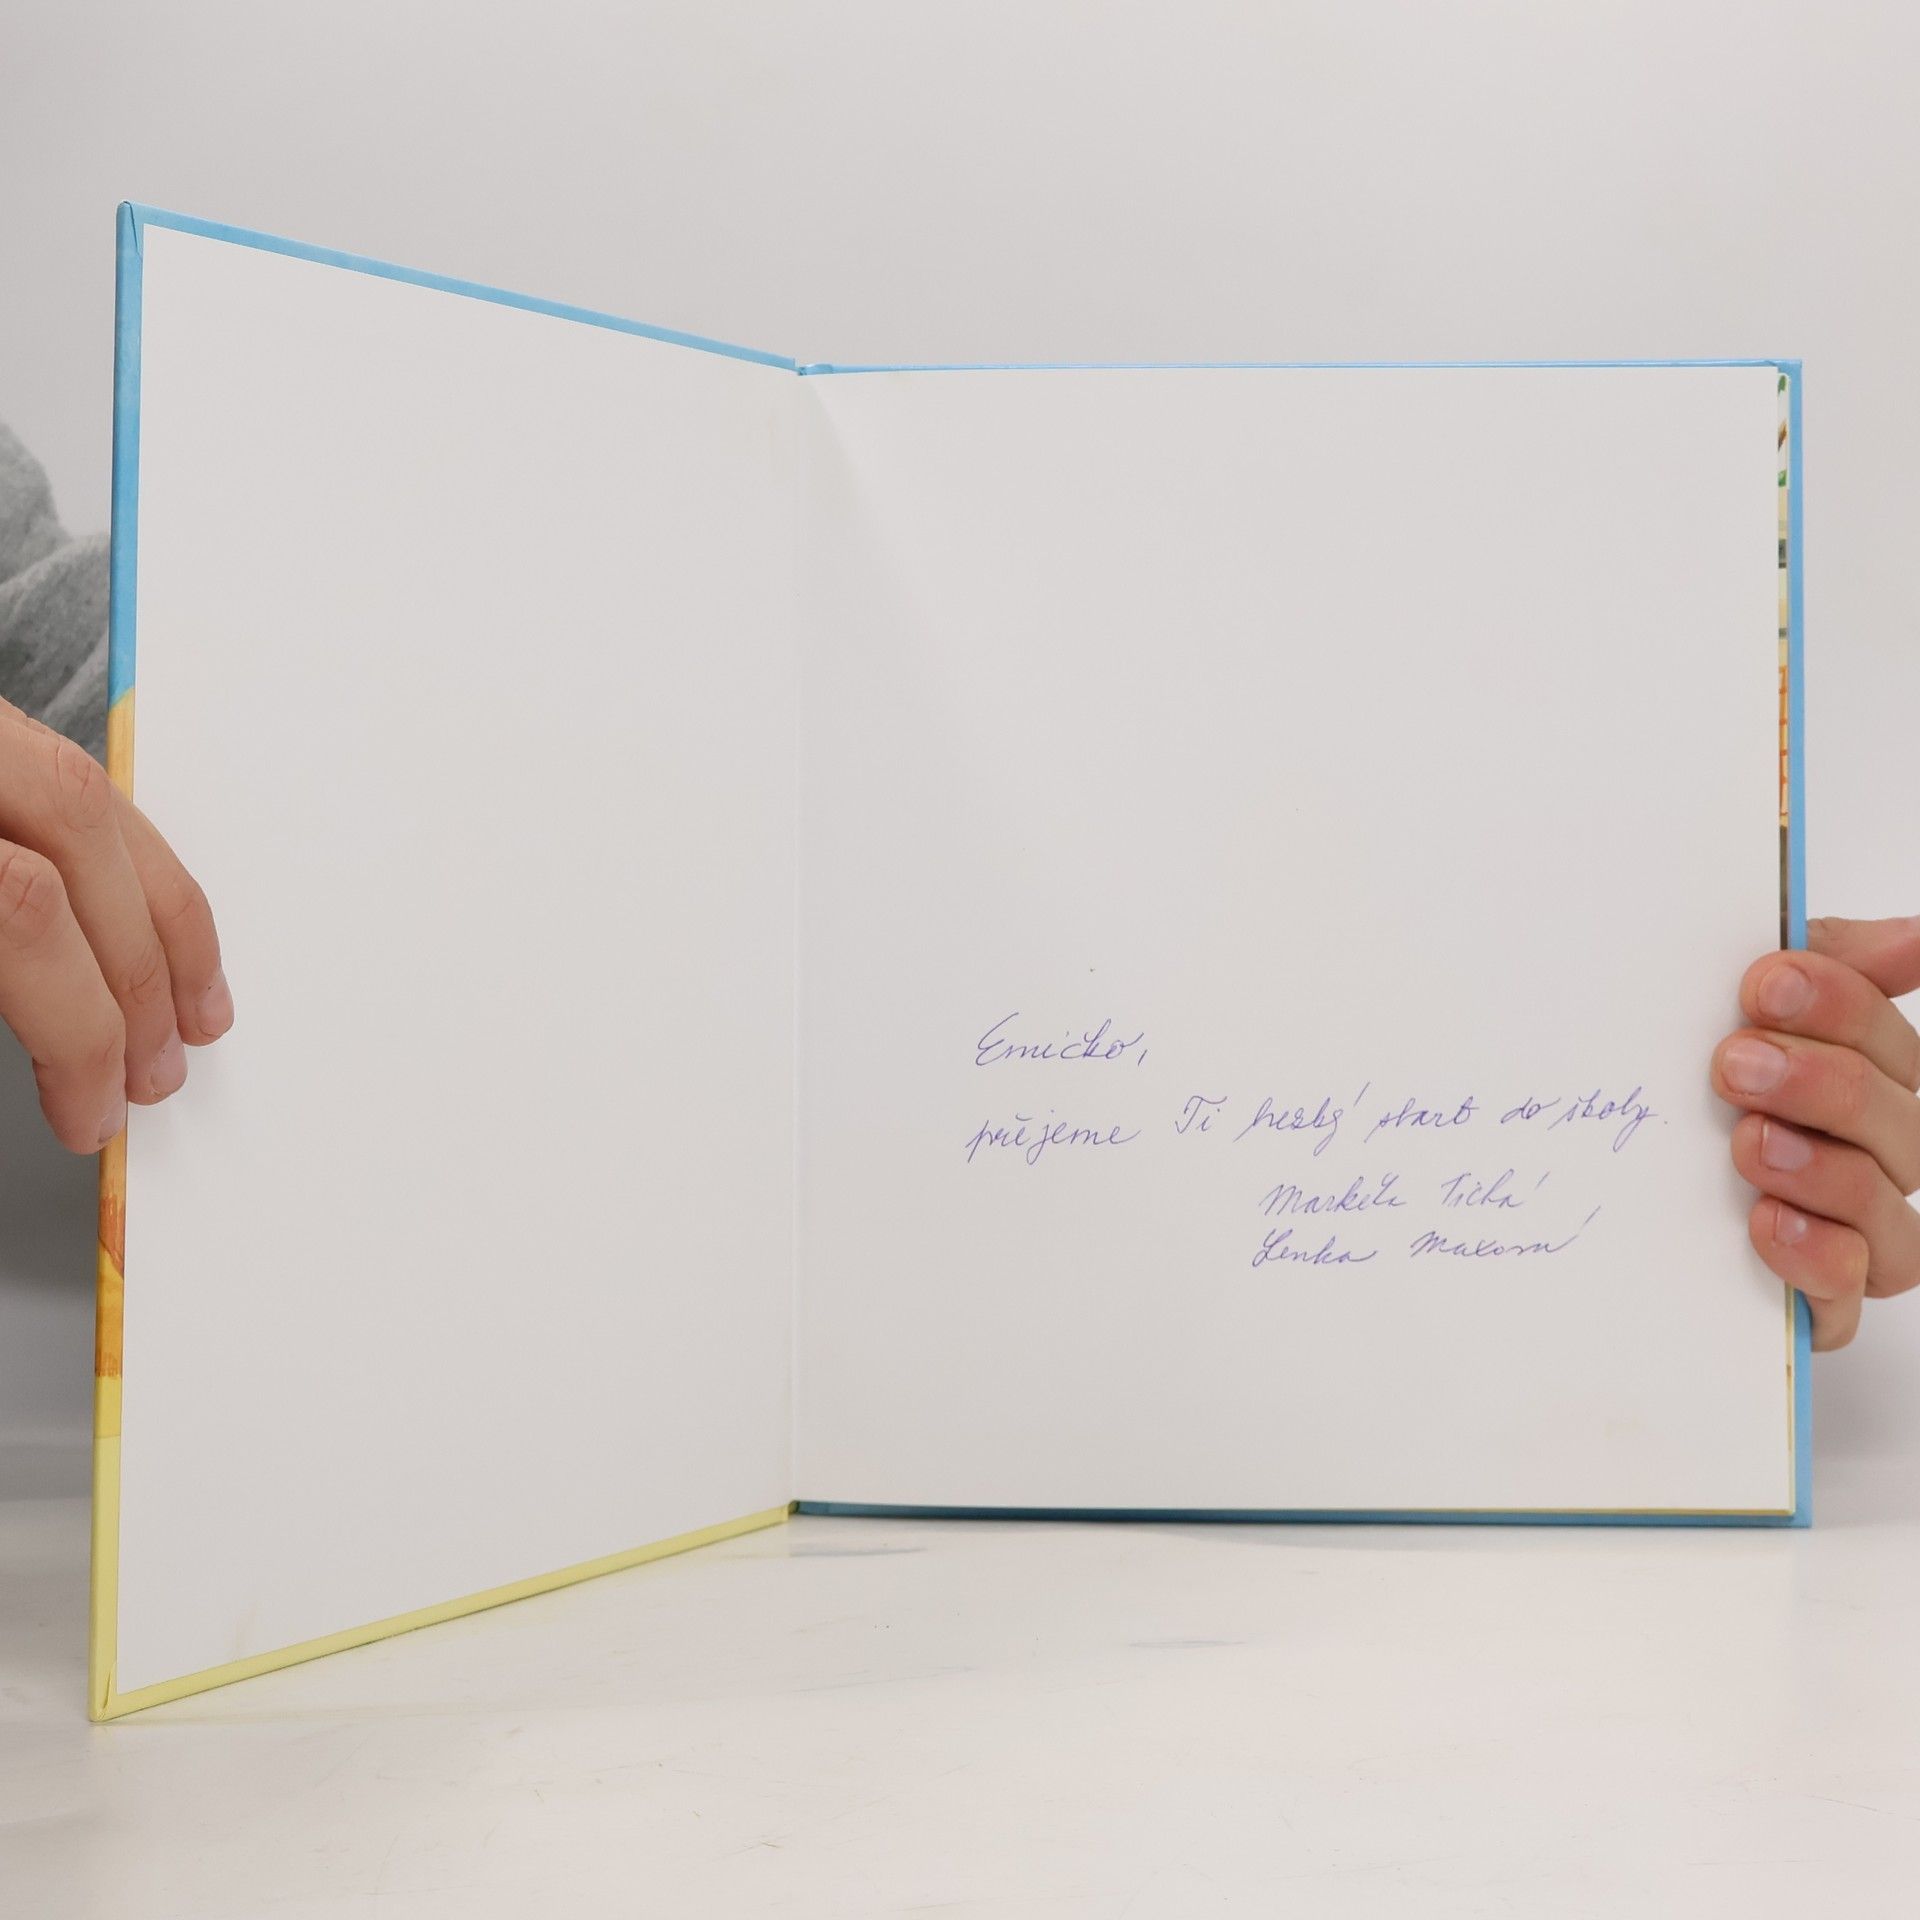 Emičko,
přejeme Ti hezký start do školy.
Markéta Tichá
Lenka Maxová